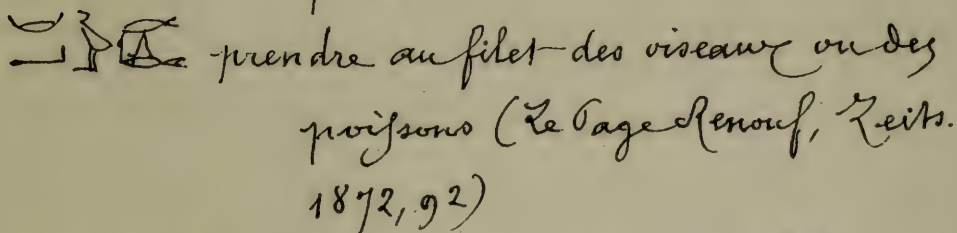 prendre au filet des oiseaux ou des
poissons (Le Page Renouf, Zeits.
1872, 92)